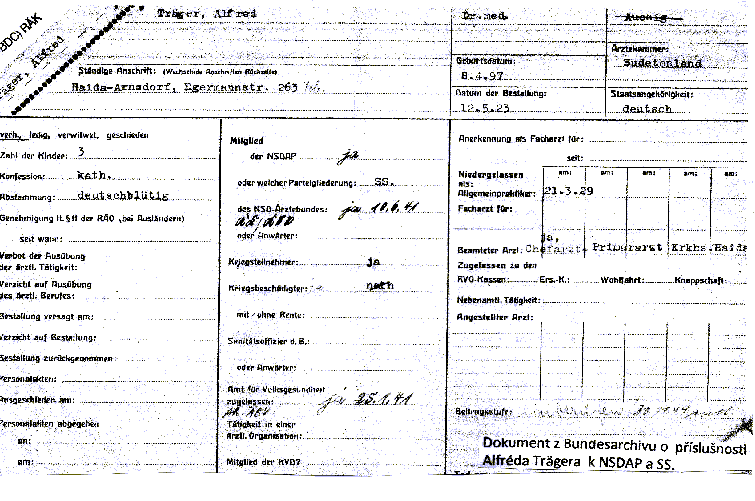 BDC/RÄK
Träger, Alfred
Träger, Alfred
Dr.med.
Ständige Anschrift: (Wechselnde Anschriften Rückseite)
Haida-Arnsdorf, Egermannstr. 263
Geburtsdatum:
8.4.97
Datum der Bestallung:
12.5.23
Aussig
Ärztekammer:
Sudetenland
Staatsangehörigkeit:
deutsch
verh., ledig, verwitwet, geschieden
Zahl der Kinder: 3
Konfession: kath.
Abstammung: deutschblütig
Genehmigung lt. § 11 der RÄO (bei Ausländern)
seit wann:
Verbot der Ausübung
der ärztl. Tätigkeit:
Verzicht auf Ausübung
des ärztl. Berufes:
Bestallung versagt am:
Verzicht auf Bestallung:
Bestallung zurückgenommen:
Personalakten:
Ausgeschieden am:
Personalakten abgegeben
an:
am:
Mitglied
der NSDAP ja
oder welcher Parteigliederung: SS.
des NSD-Ärztebundes: ja 10.6.41
oder Anwärter:
Kriegsteilnehmer: ja
Kriegsbeschädigter: nein
mit / ohne Rente:
Sanitätsoffizier d. B.:
oder Anwärter:
Amt für Volksgesundheit
zugelassen: ja 25.1.41
Tätigkeit in einer
ärztl. Organisation:
Mitglied der KVD?
Anerkennung als Facharzt für:
seit:
Niedergelassen
als:
am: am: am: am: am:
Allgemeinpraktiker: 21.3.29
Facharzt für:
ja,
Beamteter Arzt: Chefarzt, Primararzt Krkhs.Haida
Zugelassen zu den
RVO-Kassen: Ers.-K.: Wohlfahrt: Knappschaft:
Nebenamtl. Tätigkeit:
Angestellter Arzt:
Beitragsstufe:
Dokument z Bundesarchivu o příslušnosti
Alfréda Trägera k NSDAP a SS.